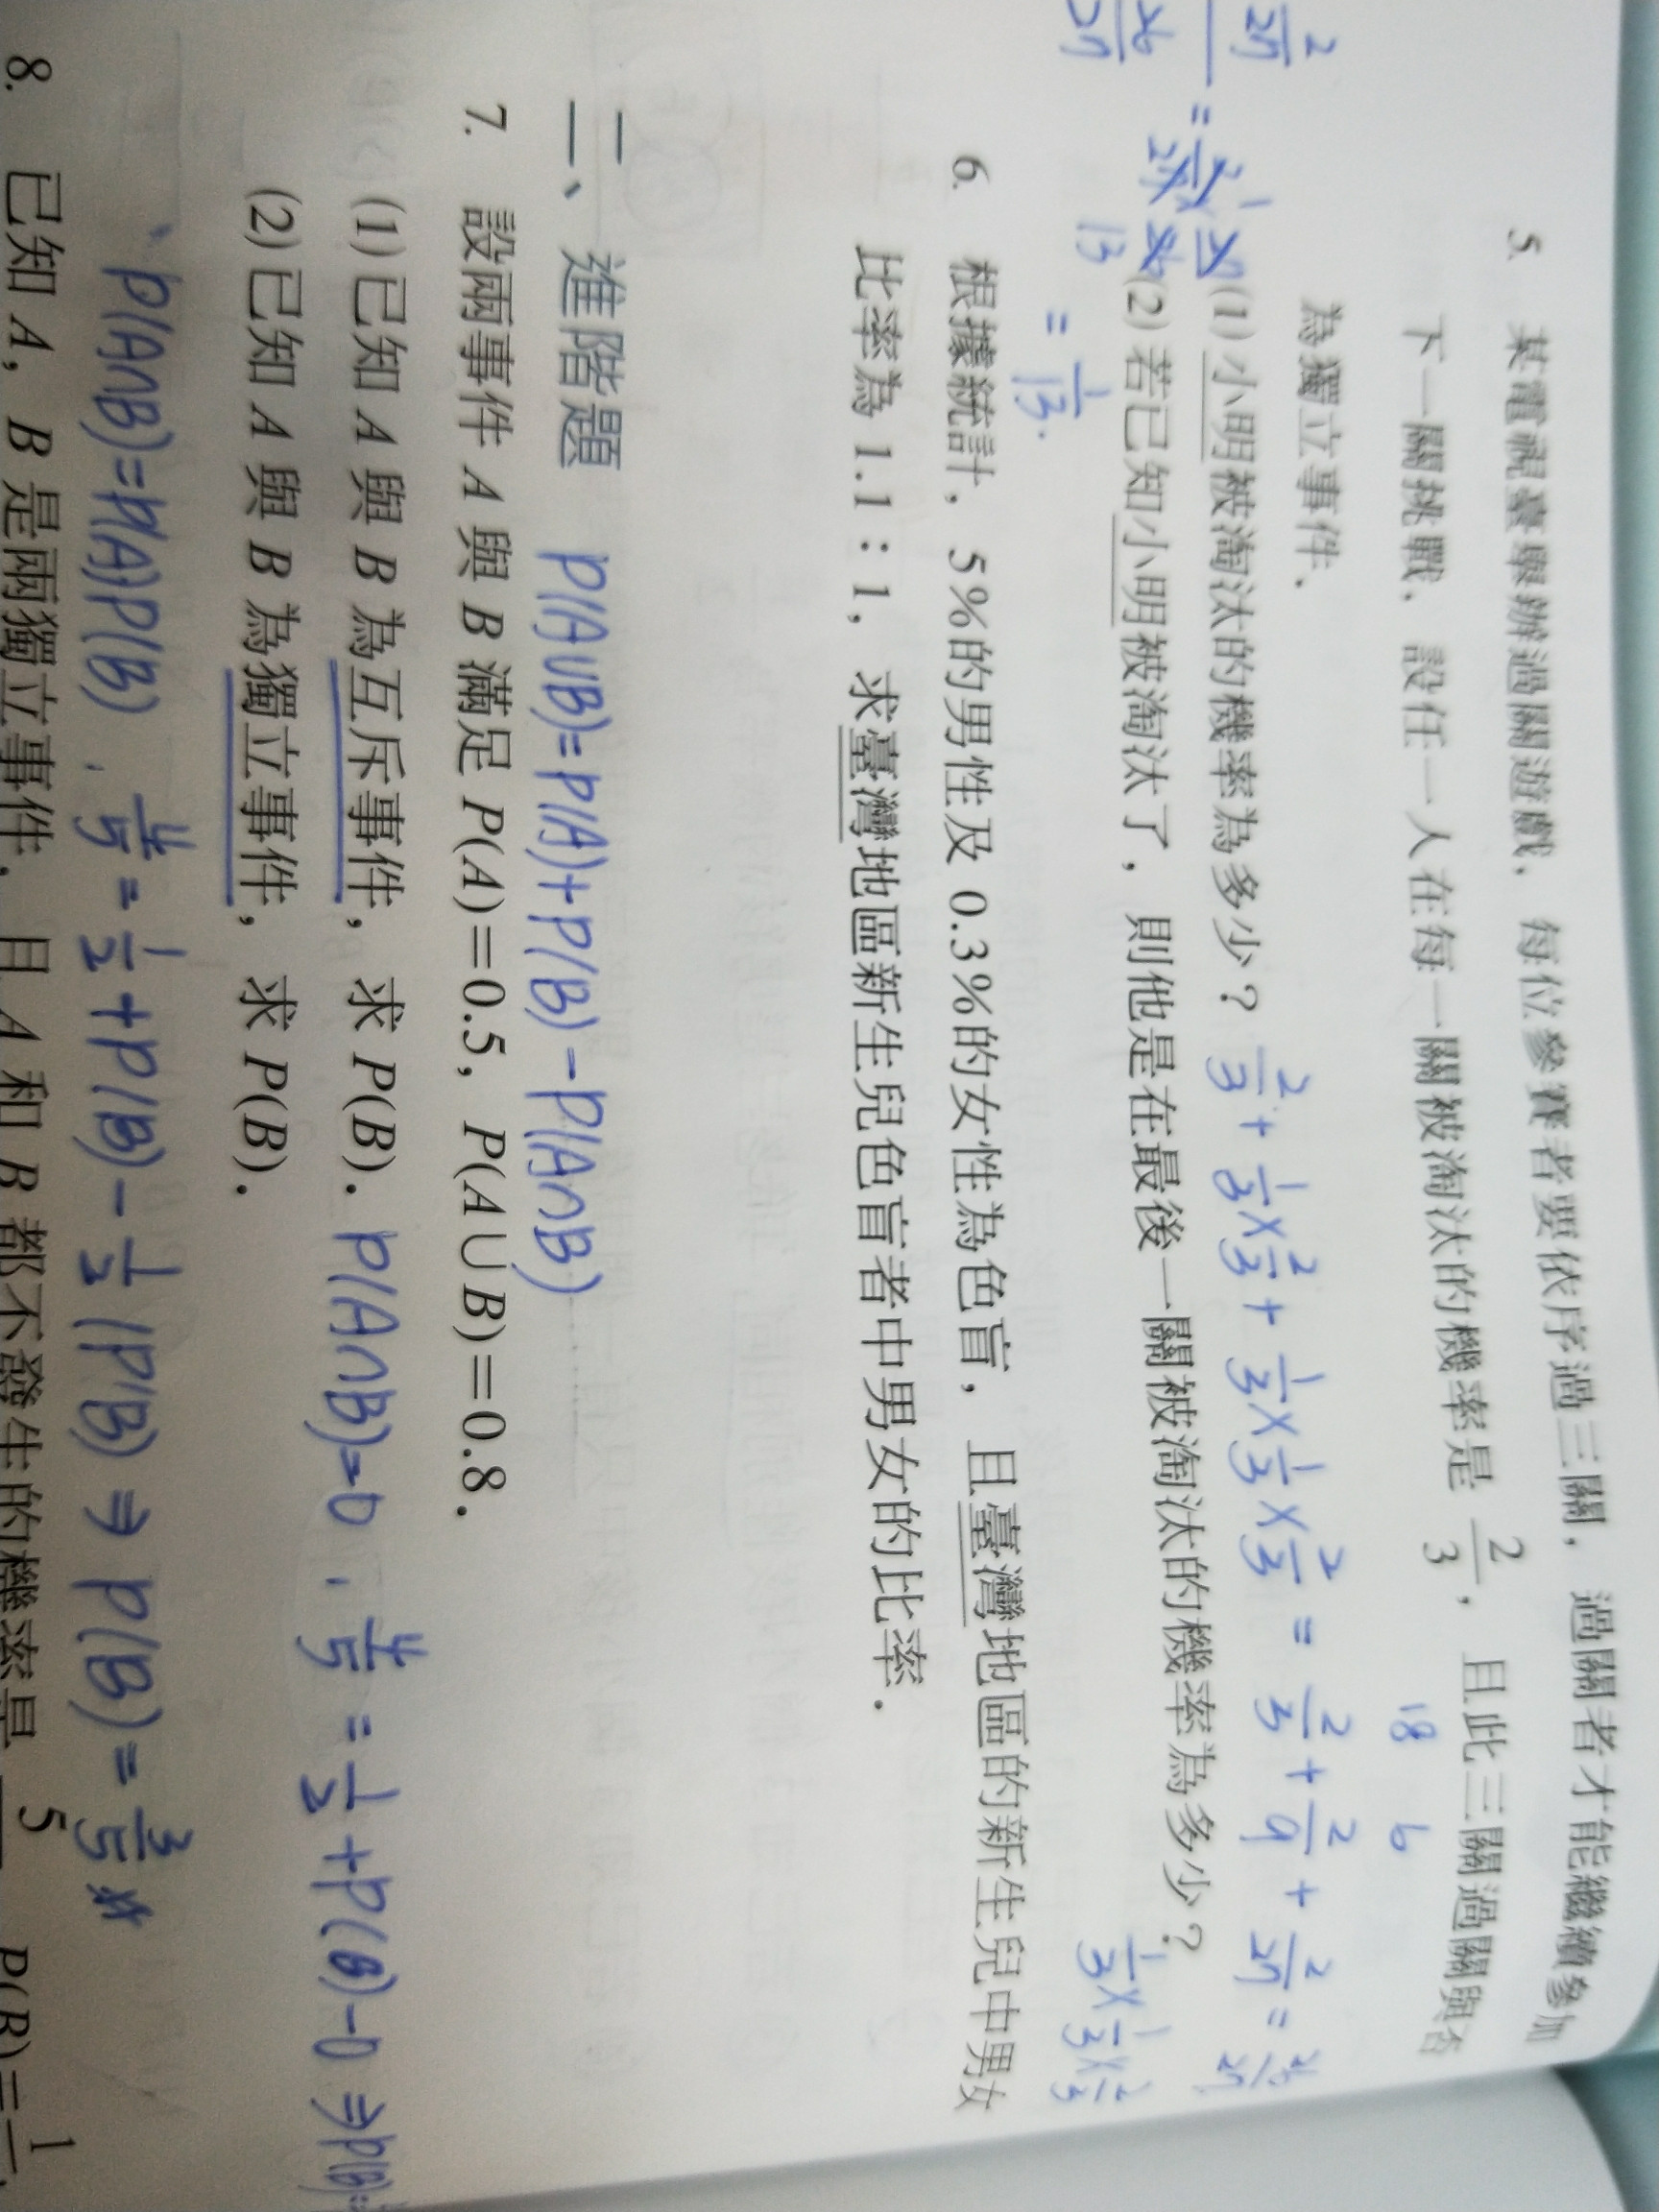 5. 某電視臺舉辦過關遊戲，每位參賽者要依序過三關，過關者才能繼續參加
下一關挑戰．設任一人在每一關被淘汰的機率是 2/3，且此三關過關與否
18 6
為獨立事件．
(1)小明被淘汰的機率為多少？ 2/3+1/3×2/3+1/3×1/3×2/3=2/3+2/9+2/27=26/27
(2)若已知小明被淘汰了，則他是在最後一關被淘汰的機率為多少？ 1/3×1/3×2/3
2/27 / 26/27 = 2/27 × 27/26 1 13
=1/13.
6. 根據統計，5%的男性及 0.3%的女性為色盲，且臺灣地區的新生兒中男女
比率為 1.1：1，求臺灣地區新生兒色盲者中男女的比率．
二、進階題 P(A∪B)=P(A)+P(B)-P(A∩B)
7. 設兩事件 A 與 B 滿足 P(A)=0.5，P(A∪B)=0.8．
(1)已知 A 與 B 為互斥事件，求 P(B)．P(A∩B)=0, 4/5=1/2+P(B)-0⇒P(B)=
(2)已知 A 與 B 為獨立事件，求 P(B)．
P(A∩B)=P(A)P(B), 4/5=1/2+P(B)-1/2(P(B)⇒P(B)=3/5
8. 已知 A，B 是兩獨立事件，且 A 和 B 都不發生的機率是 5 P(B)=1